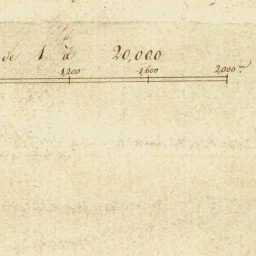 de 1 à 20,000
1200 1600 2000 m